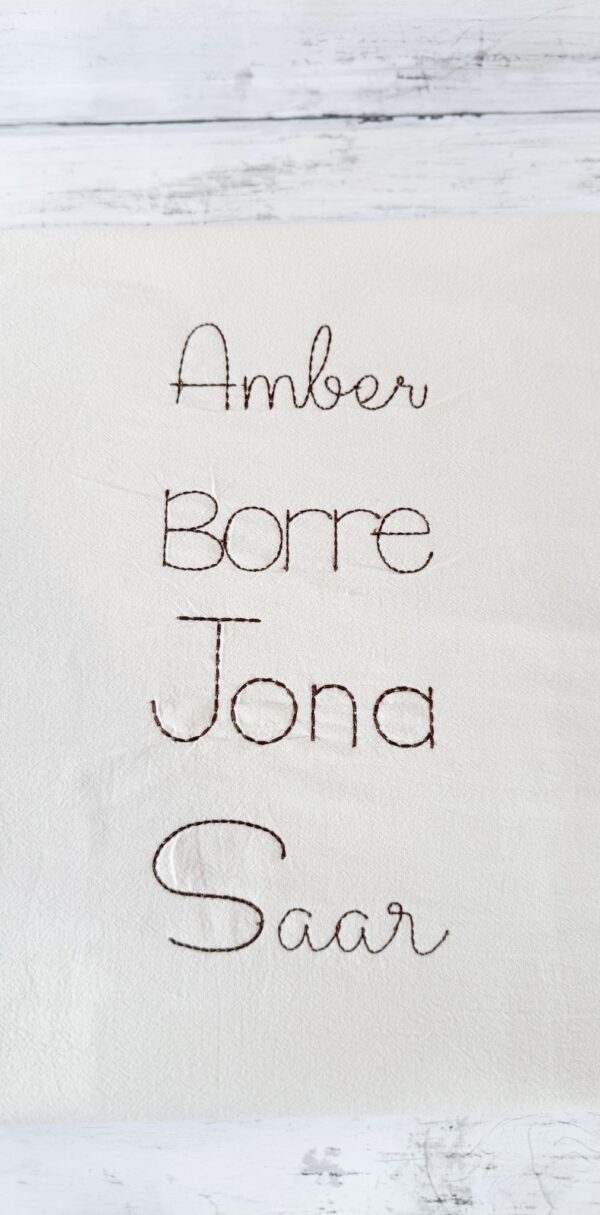 Amber
Borre
Jona
Saar